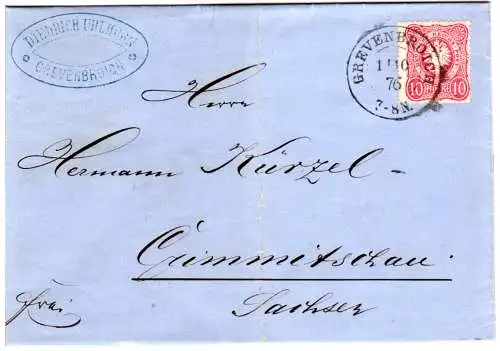 DIEDRICH UHLHORN
GREVENBROICH
GREVENBROICH
1 10
76
7-8N.
10 10
Herrn
Hermann Kürzel
Crimmitschau
Sachsen
frei